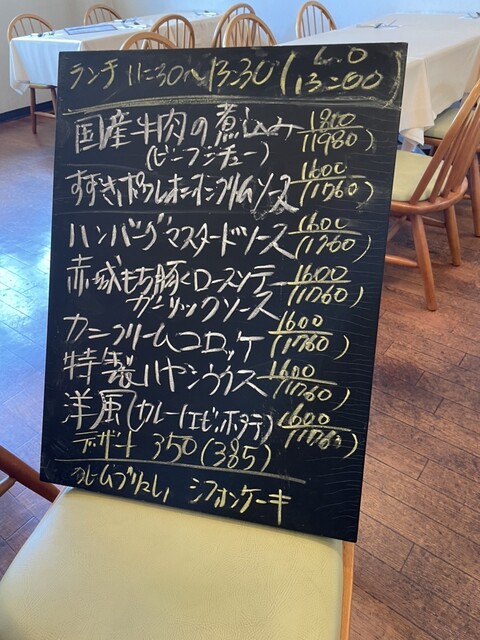 ランチ 11:30〜13:30 (L.O 13:00)
国産牛肉の煮込み 1800
(ビーフシチュー) (1980)
すずきポワレオニオンクリームソース 1600 (1760)
ハンバーグマスタードソース 1600 (1760)
赤城もち豚ロースソテー 1600
ガーリックソース (1760)
カニクリームコロッケ 1600 (1760)
特製ハヤシライス 1600 (1760)
洋風カレー(エビ、ポテト) 1600 (1760)
デザート 350 (385)
クレームブリュレ シフォンケーキ